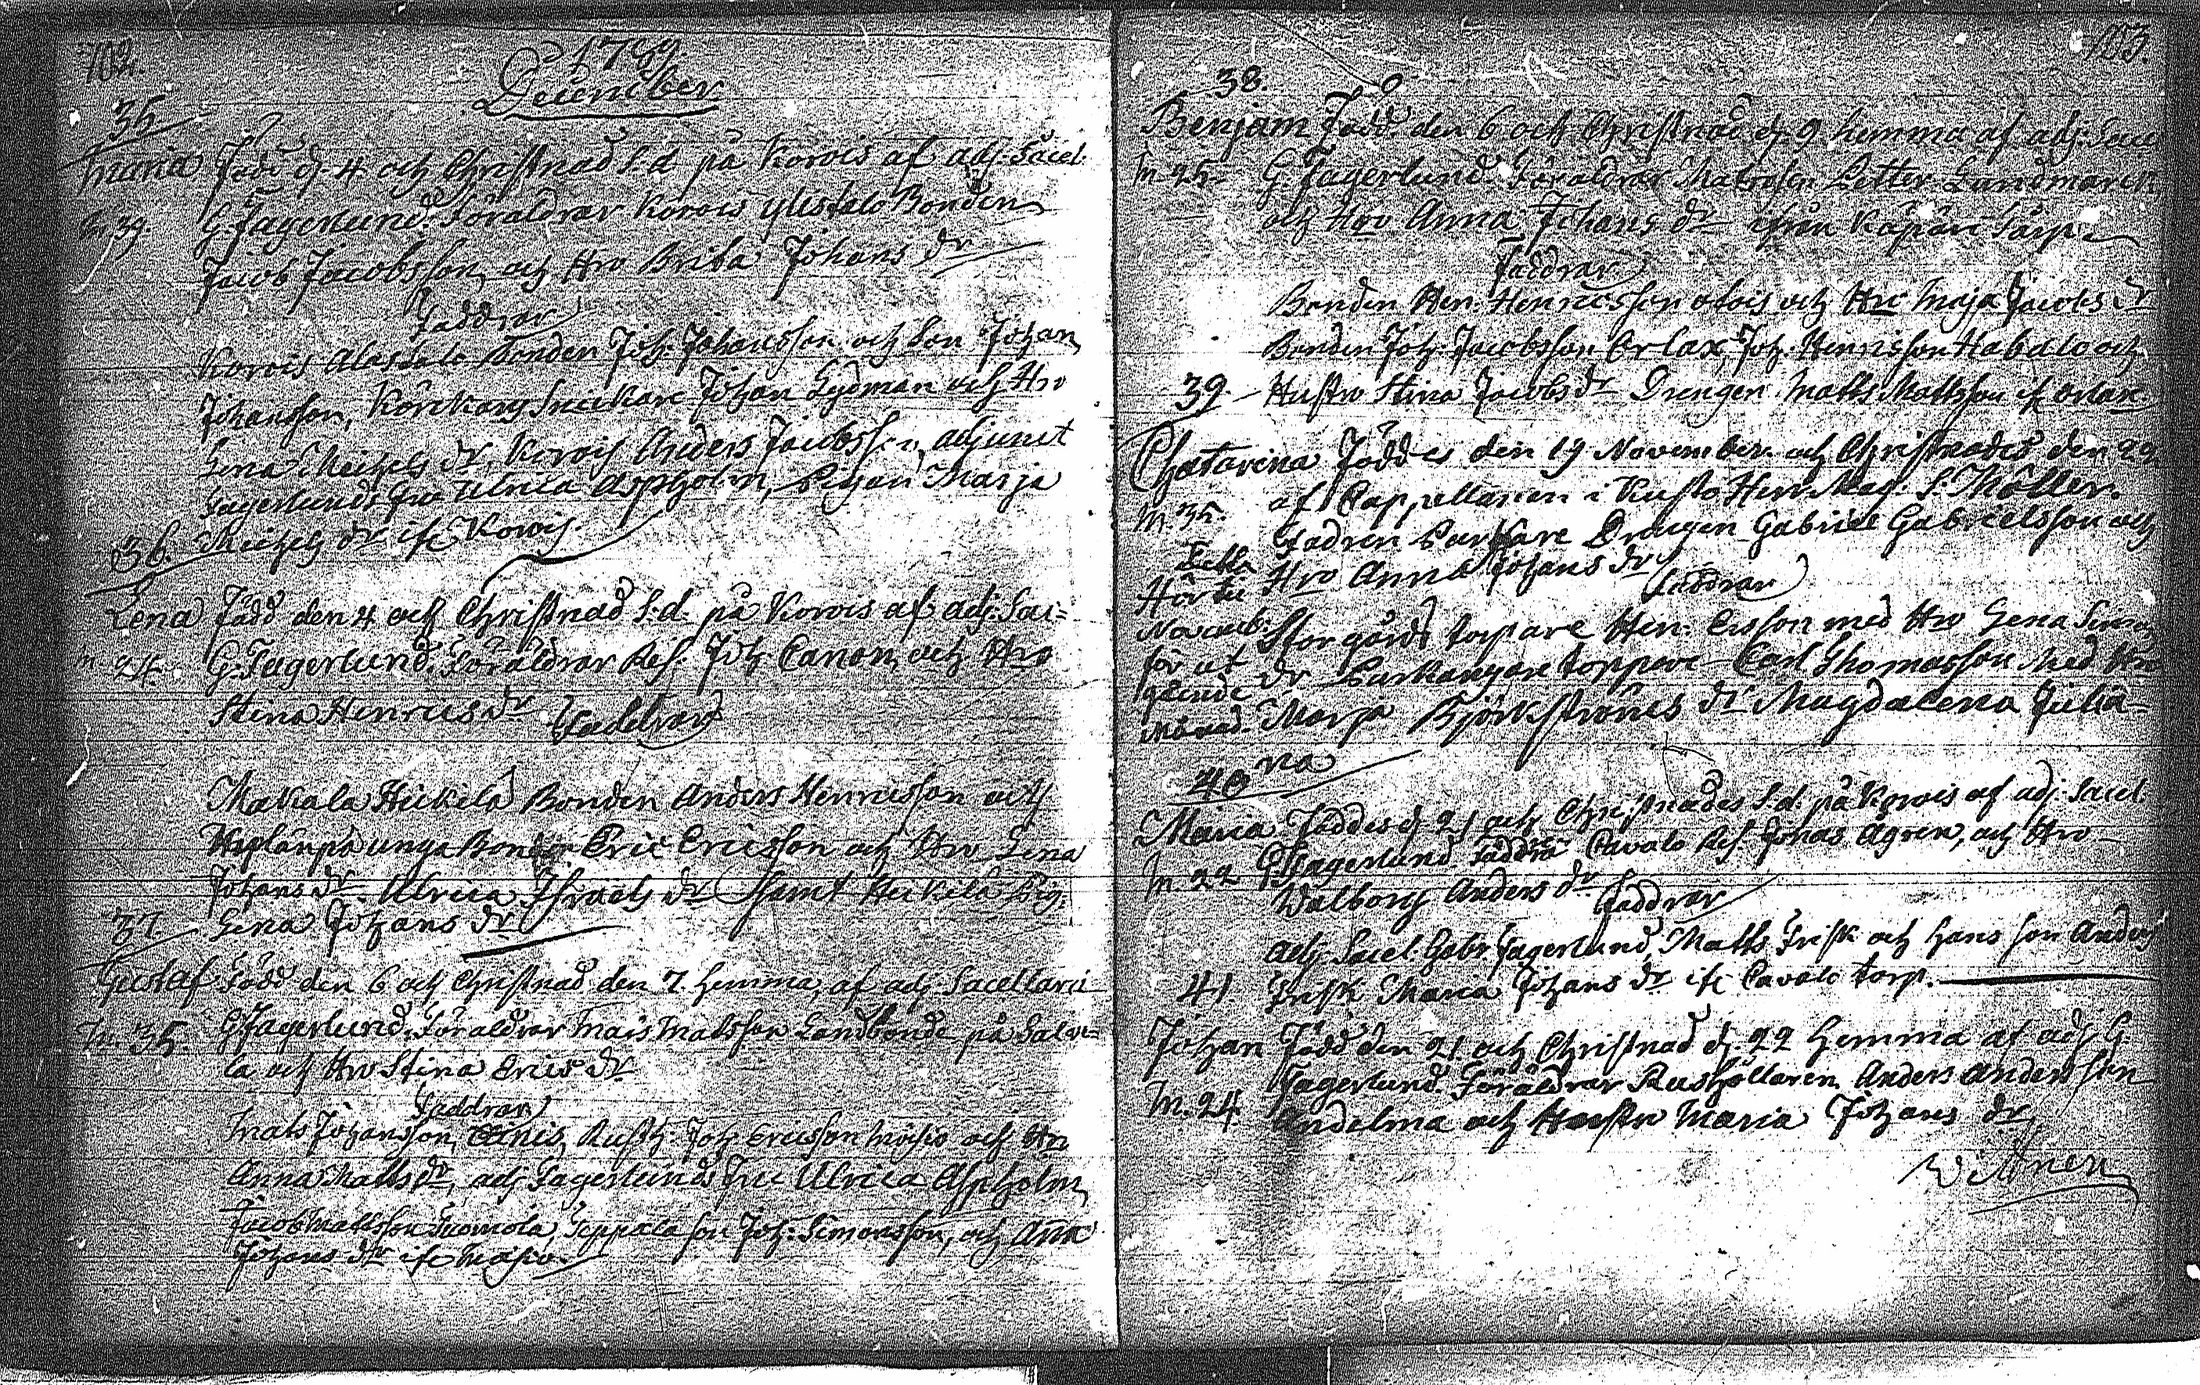 102.
1789
December
35
Maria Född d. 4 och Christnad S. d. på Korois af adj. Sacel.
M. 39 G. Fagerlund. Föräldrar Korois Ylistalo Bonden
Jacob Jacobsson och Hro Brita Johans dr
Faddrar
Korois Alastalo Bonden Joh. Johansson och Son Johan
Johansson, Snickare Johan Lydman och Hro
Lena Michels dr, Korois Anders Jacobsson, adjunct
Fagerlunds Fru Ulrica Aspholm, Pigan Marja
Michels dr if. Korois.
36.
Lena Född den 4 och Christnad S. d. på Korois af adj. Sac=
M. 24. G. Fagerlund. Föräldrar Ref. Joh Canon och Hro
Stina Henrics dr
Faddrar
Makala Heikelä Bonden Anders Henricsson och
unga Bonden Eric Ericsson och Hro Lena
Johans dr. Ulrica Israels dr samt Heikilä Pig.
Lena Johans dr
37.
Gustaf Född den 6 och Christnad den 7 hemma af adj Sacellani
M. 35. G Fagerlund. Föräldrar Mats Matsson Landbonde på
la och Hro Stina Erics dr
Faddrar
Mats Johansson, Rusth. Joh Ericsson och Hro
Anna Matts dr, adj Fagerlunds Fru Ulrica Aspholm,
Jacob Mattsson Seppälä son Joh: Simonsson, och Anna
Johans dr if.
103.
38.
Benjam Född den 6 och Christnad d. 9 hemma af adj. Sacel
M 25. G. Fagerlund. Föräldrar Petter Lundmarck
och Hro Anna Johans dr ifrån
Faddrar
Bonden Hen. Henricsson och Hro Maja Jacobs dr
Bonden Joh. Jacobsson Orlax, Joh. Henricsson och
39. Hustro Stina Jacobs dr Drengen Matts Mattsson if orlax
Chatarina Föddes den 19 November och Christnades den 22
af Cappellanen i Kusto Herr Mag. S. Möller.
M. 35. Fadren Drengen Gabriel Gabrielsson och
Detta Hro Anna Johans dr
Faddrar
Hörde
Novemb. Storgårds torpare Hen: Ersson med Hro Lena Simons
för ut dr torpare Carl Thomasson Med Hro
gående Marja Björkströms dr Magdalena Julia-
Månad. na
40
Maria Föddes d 21 och Christnades S. d. på Korois af adj. Sacel.
M. 22 G. Fagerlund. Föddra Cavalo Ref. Jonas Ågren, och Hro
Walborg Anders dr
Faddrar
adj Sacel. Gabr. Fagerlund, Matts Frisk och hans son Anders
41 Frisk Maria Johans dr if. Cavalo torp.
Johan Född den 21 och Christnad d. 22 hemma af adj G.
M. 24. Fagerlund. Föräldrar Rushollaren Anders Andersson
Andelma och Hustro Maria Johans dr